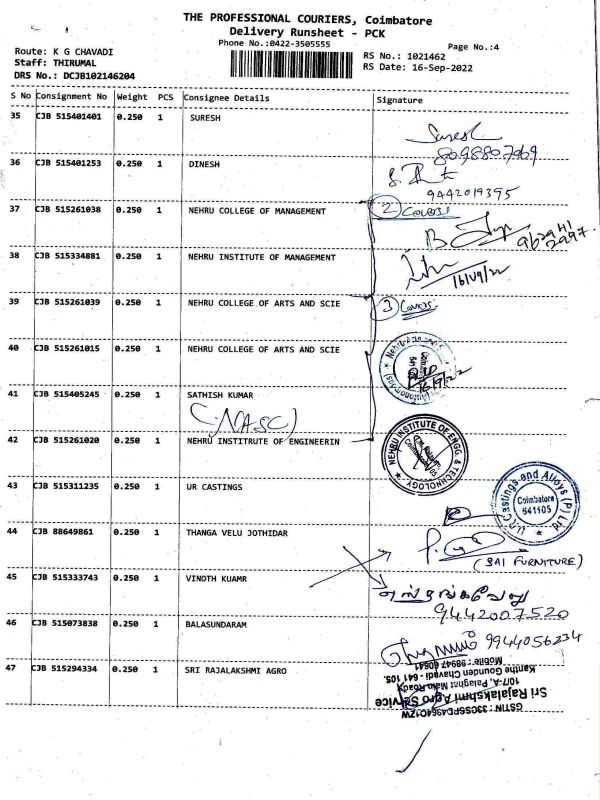 THE PROFESSIONAL COURIERS, Coimbatore
Delivery Runsheet - PCK
Phone No.:0422-3505555
Page No.:4
Route: K G CHAVADI
Staff: THIRUMAL
DRS No.: DCJB102146204
RS No.: 1021462
RS Date: 16-Sep-2022
S No Consignment No Weight PCS Consignee Details Signature
35 CJB 515401401 0.250 1 SURESH
Suresh
8098807969
36 CJB 515401253 0.250 1 DINESH
9442019395
37 CJB 515261038 0.250 1 NEHRU COLLEGE OF MANAGEMENT
2 Covers
38 CJB 515334881 0.250 1 NEHRU INSTITUTE OF MANAGEMENT
16/09/22
39 CJB 515261039 0.250 1 NEHRU COLLEGE OF ARTS AND SCIE
3 Covers
40 CJB 515261015 0.250 1 NEHRU COLLEGE OF ARTS AND SCIE
Coimbatore
16/9/22
41 CJB 515405245 0.250 1 SATHISH KUMAR
(NASC)
42 CJB 515261020 0.250 1 NEHRU INSTITRUTE OF ENGINEERIN
NEHRU INSTITUTE OF ENGG. & TECHNOLOGY
43 CJB 515311235 0.250 1 UR CASTINGS
U.R.Castings and Alloys (P) Ltd
Coimbatore
641105
44 CJB 88649861 0.250 1 THANGA VELU JOTHIDAR
(SAI FURNITURE)
45 CJB 515333743 0.250 1 VINOTH KUAMR
9442007520
46 CJB 515073838 0.250 1 BALASUNDARAM
9944056234
47 CJB 515294334 0.250 1 SRI RAJALAKSHMI AGRO
GSTIN : 33CSSPD4964O1ZW
Sri Rajalakshmi Agro Service
10/7-A, Palaghat Main Road,
Kanthe Gounden Chavadi - 641 105.
Mobile : 98947 60641